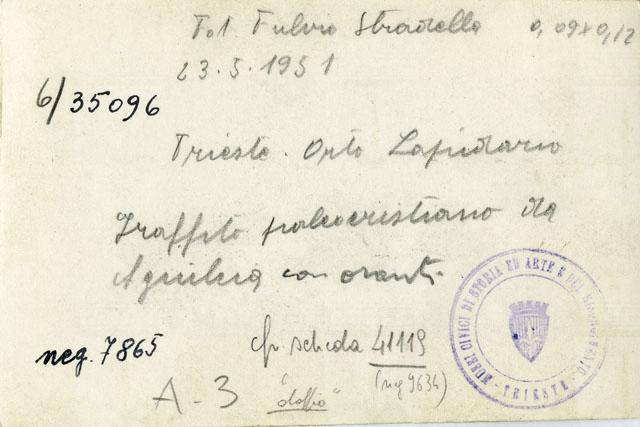 Fot. Fulvio Stradella 0,09x0,12
23.5.1951
6/35096
Trieste. Orto Lapidario
Graffito paleocristiano da
Aquileia con oranti
neg. 7865
cfr. scheda 41119
(neg 9634)
A-3 "doppio"
MUSEI CIVICI DI STORIA ED ARTE E DEL RISORGIMENTO - TRIESTE -